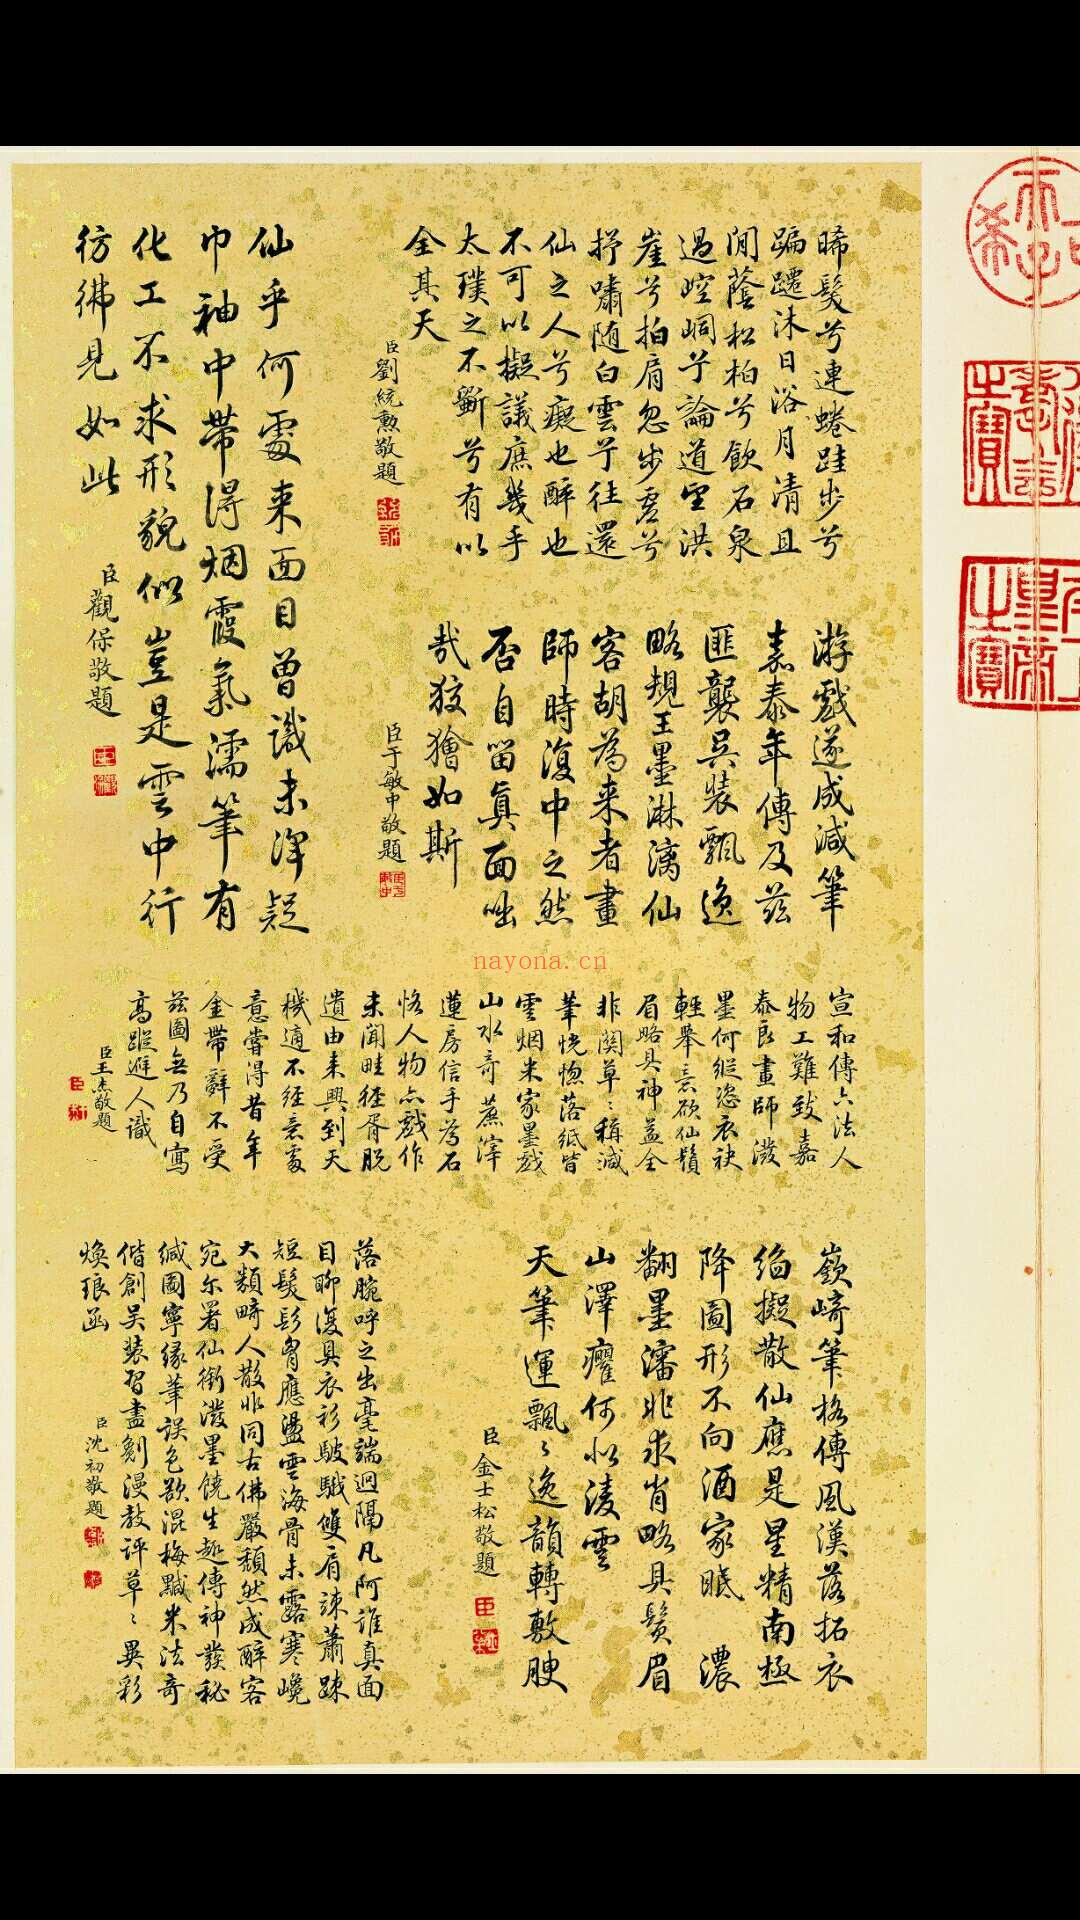 晞髮兮連蜷跬步兮
蹁躚沐日浴月清且
閒蔭松柏兮飲石泉
過崆峒兮論道望洪
崖兮拍肩忽步虛兮
抒嘯随白雲兮往還
仙之人兮癡也醉也
不可以擬議庶幾乎
太璞之不斵兮有以
全其天
臣劉統勲敬題
游戲遂成減筆
嘉泰年傳及茲
匪襲吳裝飄逸
略規王墨淋漓仙
客胡為来者畫
師時復中之然
否自留真面咄
哉狡獪如斯
臣于敏中敬題
仙乎何處来面目曾識未渾疑
巾袖中帶得烟霞氣濡筆有
化工不求形貌似豈是雲中行
彷彿見如此
臣觀保敬題
宣和傳六法人
物工難致嘉
泰良畫師潑
墨何縱恣衣袂
輕舉意欲仙鬚
眉略具神益全
非関草〻稱減
筆恍惚落紙皆
雲烟米家墨戲
山水奇蔗滓
蓮房信手為石
恪人物亦戲作
未聞畦徑胥脫
遺由来興到天
機適不经意處
意嘗得昔年
金帶辭不受
茲圖無乃自寫
高蹤避人識
臣王杰敬題
嶔崎筆格傳風漢落拓衣
絇擬散仙應是星精南極
降圖形不向酒家眠 濃
翻墨瀋非求肖略具鬚眉
山澤癯何似凌雲
天筆運飄〻逸韻轉敷腴
臣金士松敬題
落腕呼之出毫端迥隔凡阿誰真面
目聊復具衣衫駊騀雙肩竦蕭疎
短髮髟胷應盪雲海骨未露寒巉
大類畸人散非同古佛嚴頹然成醉客
宛尓署仙銜潑墨饒生趣傳神發秘
緘圖寧緣筆誤色欲混梅黬米法奇
偕創吳裝習盡劖漫教評草〻異彩
煥琅函
臣沈初敬題
nayona.cn